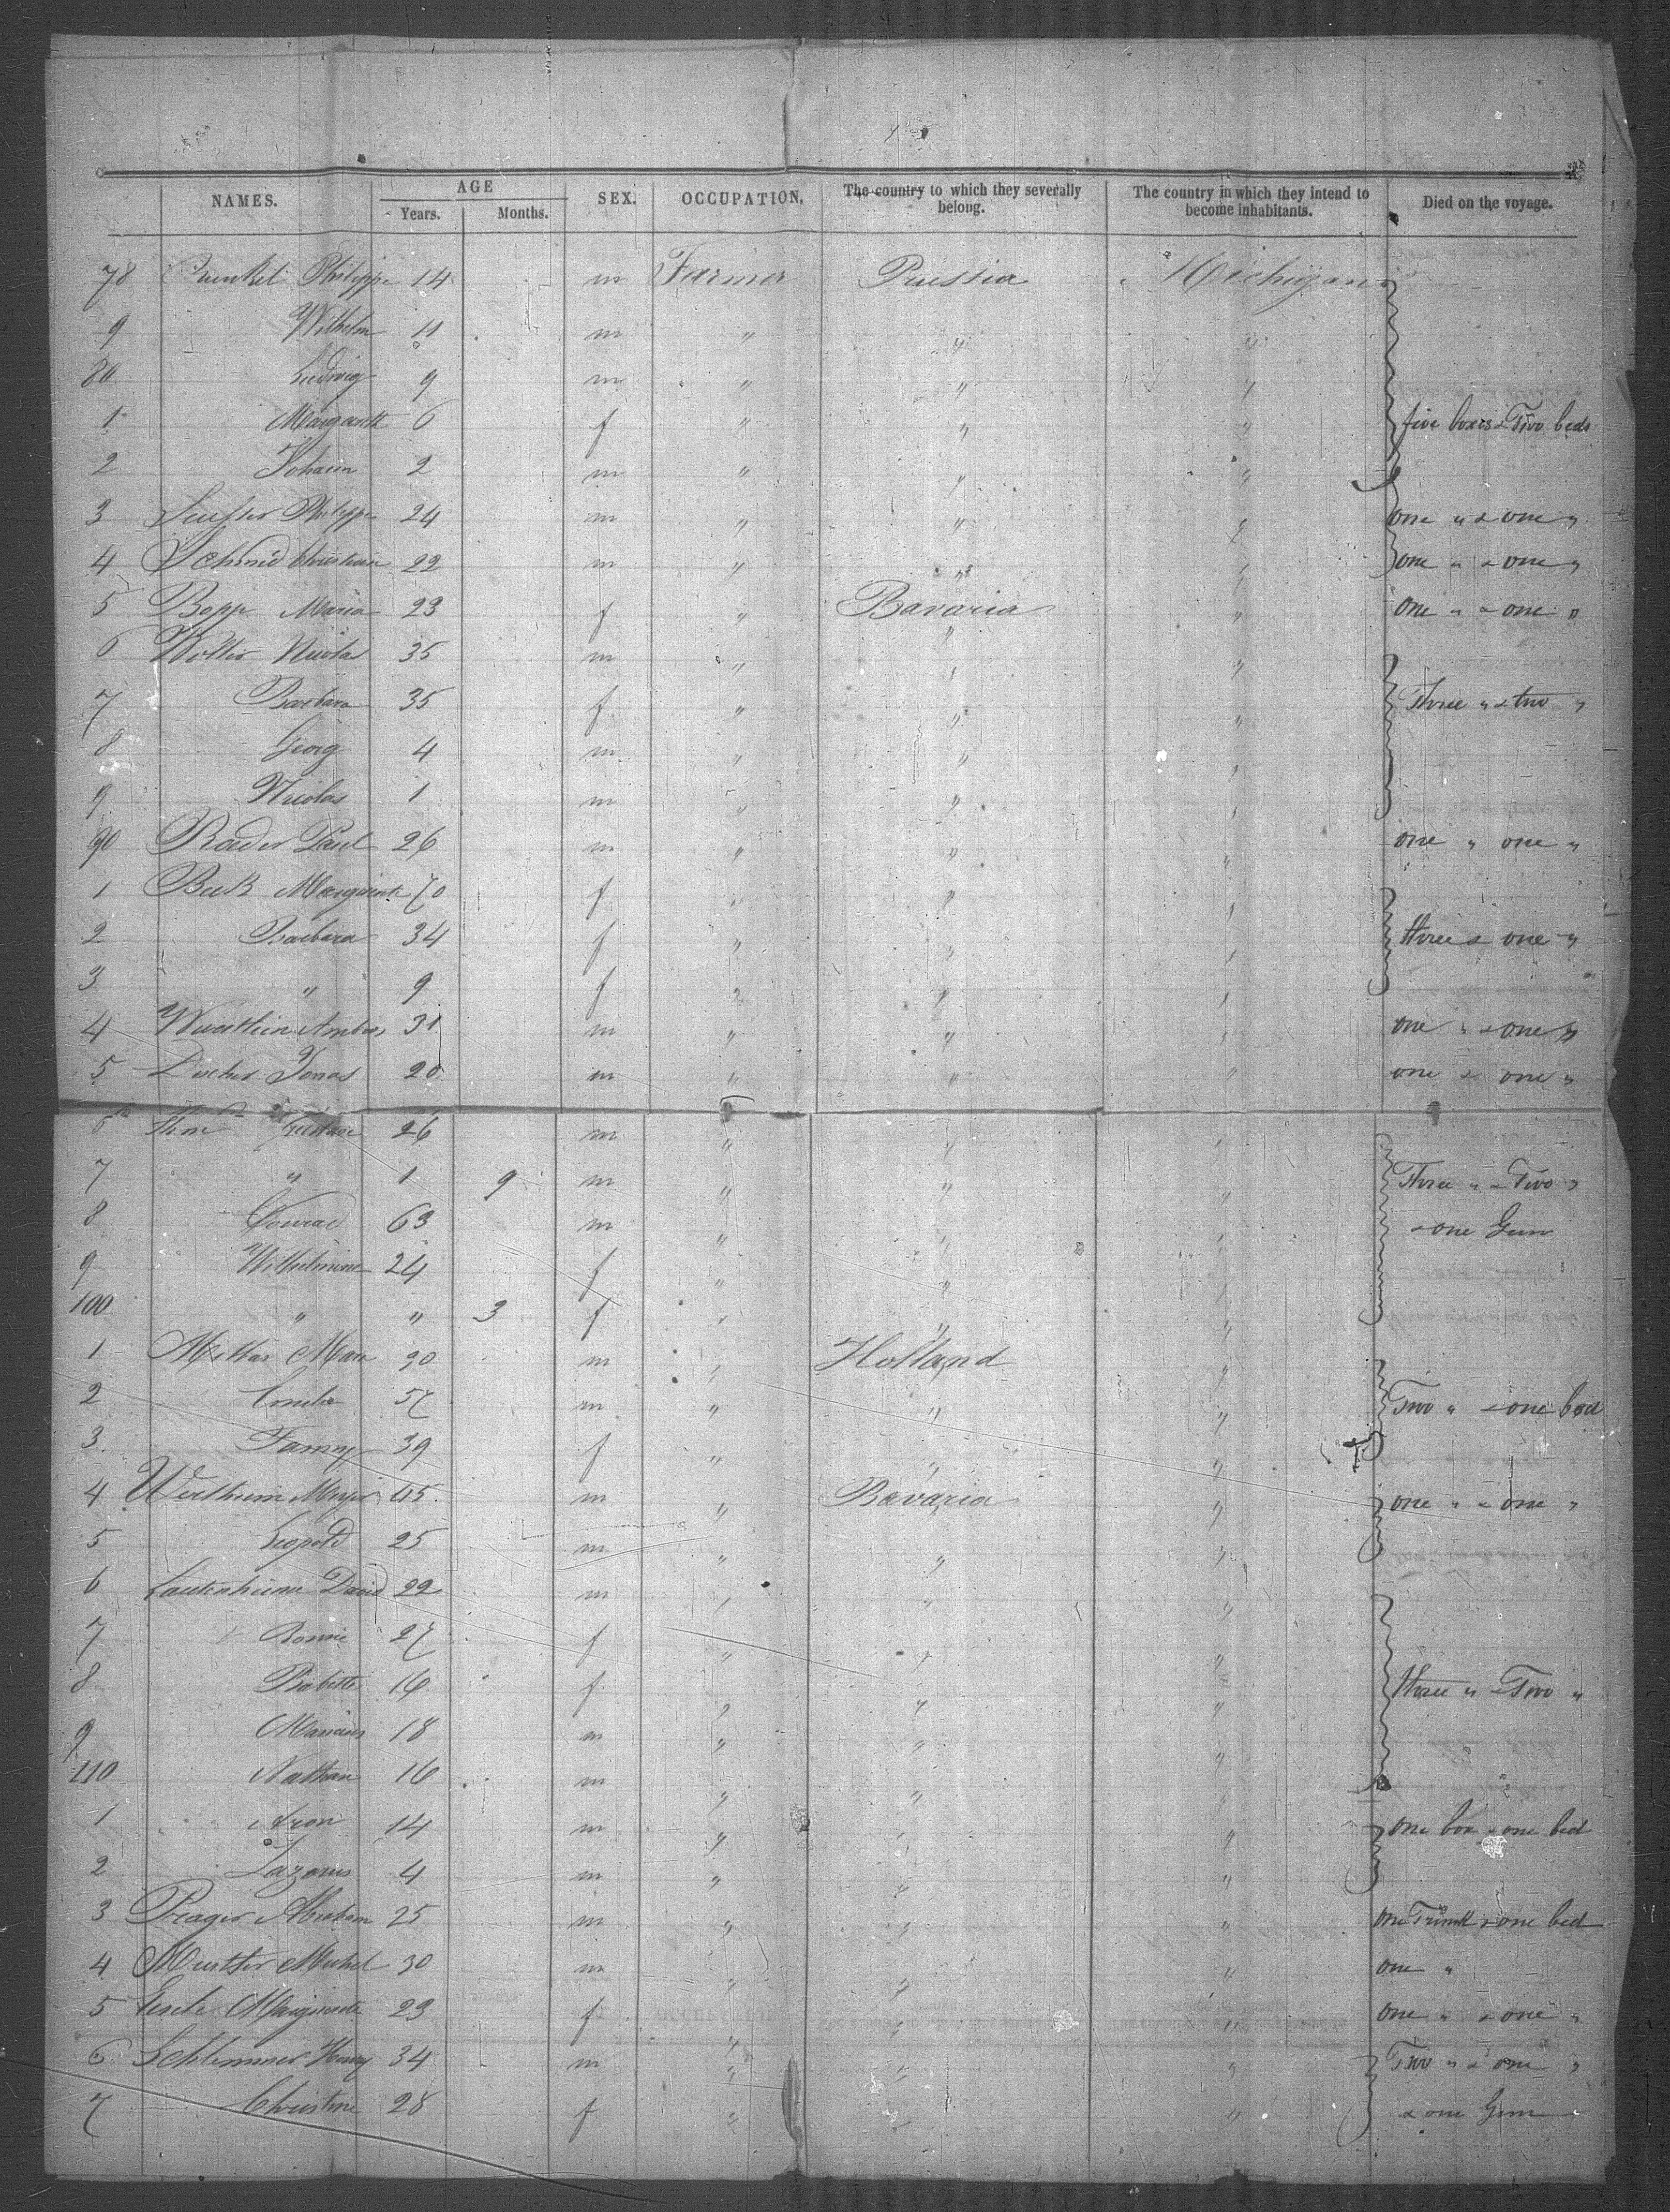 NAMES. AGE SEX. OCCUPATION. The country to which they severally belong. The country in which they intend to become inhabitants. Died on the voyage.
Years. Months.
78 Philippe 14 m Farmer Prussia Michigan
9 Wilhelm 11 m " " "
80 Ludwig 9 m " " "
1 Margareth 6 f " " " five boxes & Two beds
2 Johann 2 m " " "
3 Philippe 24 m " " " one " & one "
4 Schmid Christian 22 m " " " one " & one "
5 Bopp Maria 23 f " Bavaria " one " & one "
6 Nicolas 35 m " " "
7 Barbara 35 f " " " Three " & two "
8 Georg 4 m " " "
9 Nicolas 1 m " " "
90 Paul 26 m " " " one " one "
1 Beck 70 f " " "
2 Barbara 34 f " " " three & one "
3 " 9 f " " "
4 31 m " " " one " & one "
5 Jonas 20 m " " " one & one "
6 Gustave 26 m " " "
7 " 1 9 m " " " Three " & Two "
8 Conrad 63 m " " " & one Gun
9 Wilhelmine 24 f " " "
100 " " 3 f " " "
1 30 m " Holland "
2 57 m " " " Two " & one bed
3 Fanny 39 f " " "
4 Wertheim 45 m " Bavaria " one " & one "
5 Leopold 25 m " " "
6 David 22 m " " "
7 27 f " " "
8 Babette 16 f " " " three " & Two "
9 18 m " " "
110 Nathan 16 m " " "
1 Aron 14 m " " " one box & one bed
2 Lazarus 4 m " " "
3 Prager Abraham 25 m " " " one Trunk & one bed
4 Michel 30 m " " " one "
5 23 f " " " one " & one "
6 Schlemmer Henry 34 m " " " Two " & one "
7 Christine 28 f " " " & one Gun